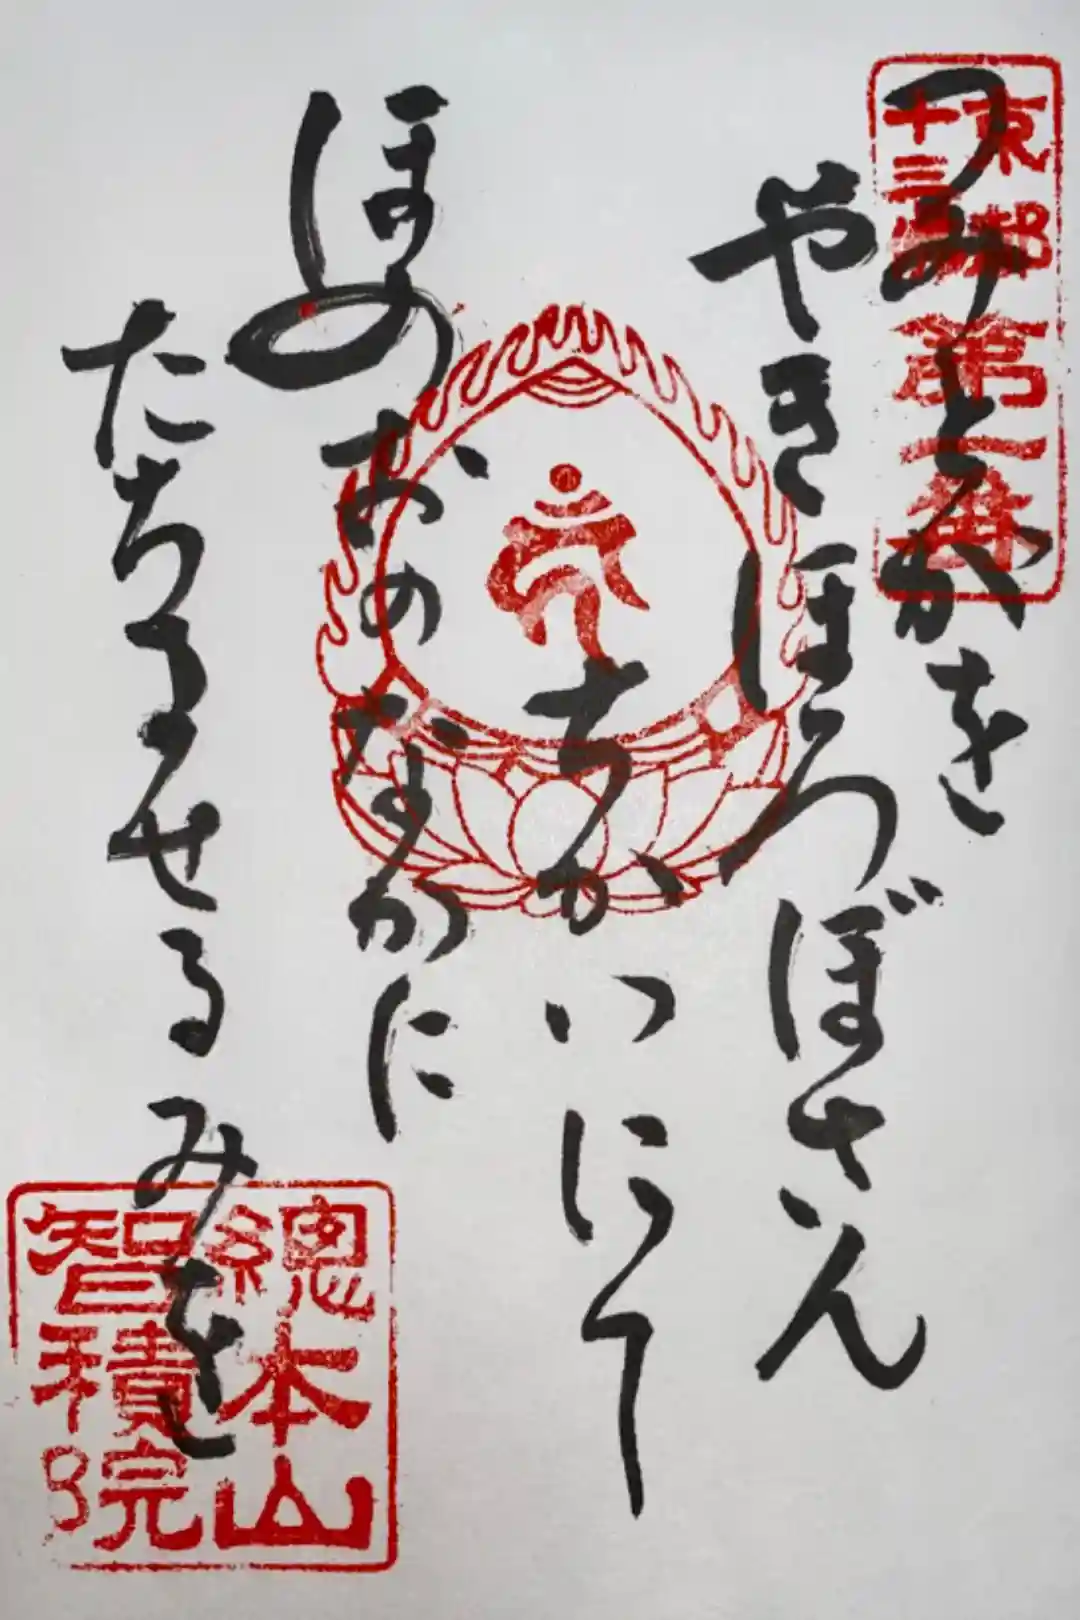 京都
十三佛
第一番
つみとがを
やきほろぼさん
ちかいにて
ほのおのなかに
たちませるみを
總本山
智積院